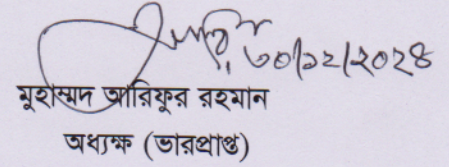 ৩০/১২/২০২৪
মুহাম্মদ আরিফুর রহমান
অধ্যক্ষ (ভারপ্রাপ্ত)